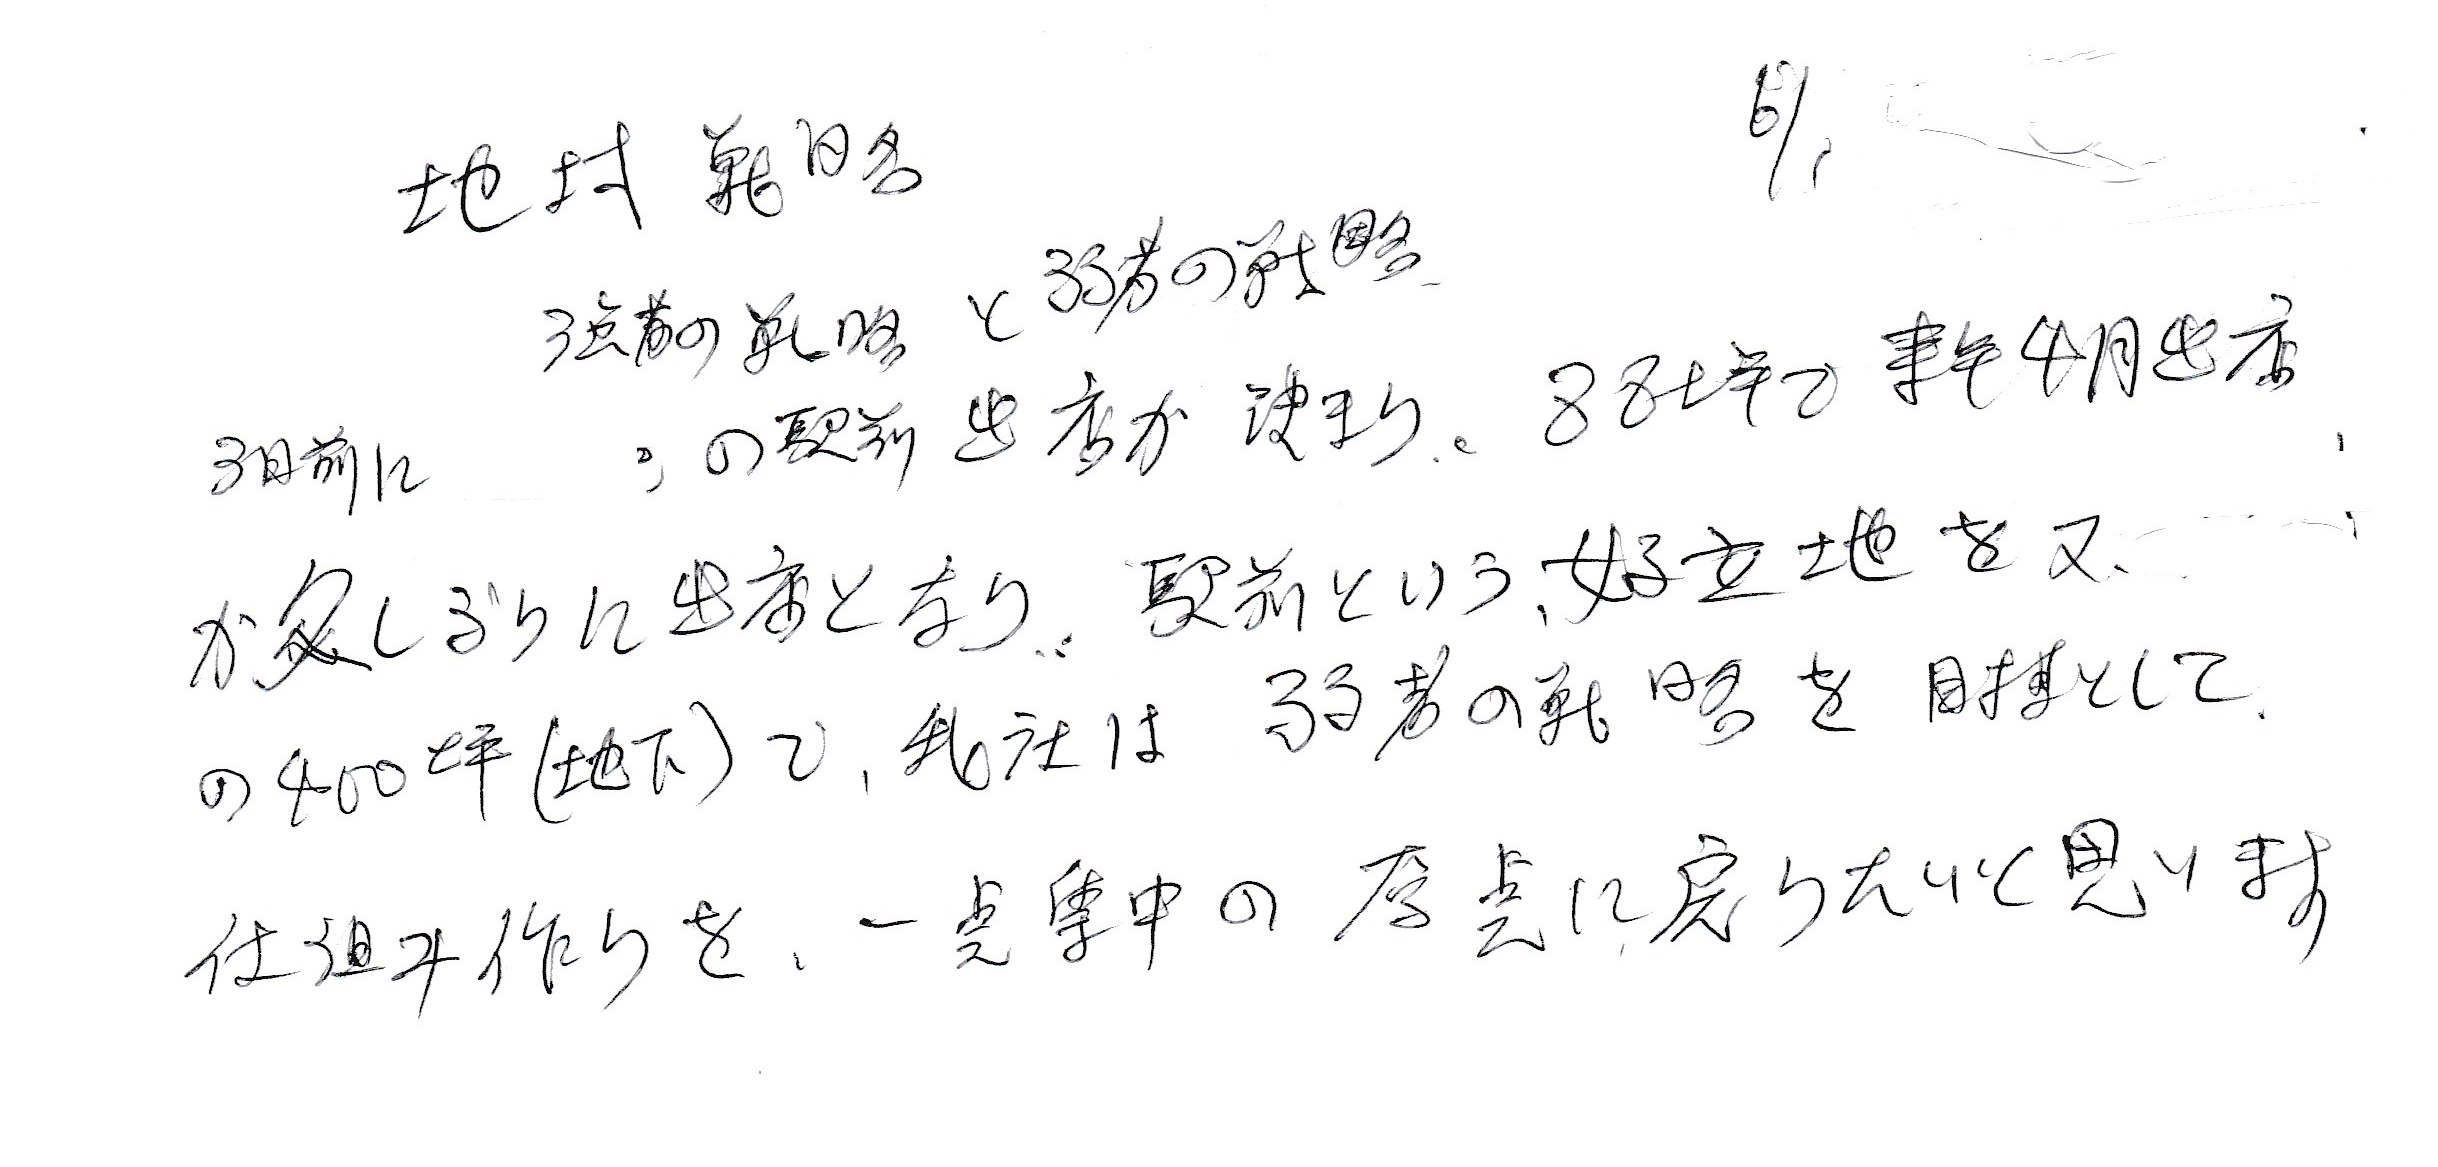 6/1
地域戦略
強者の戦略と弱者の戦略
3日前に の駅前出店が決まり、88坪で来年4月出店
が久しぶりに出店となり、駅前という、好立地を又、
の400坪(地下)で、私社は 弱者の戦略を目標として、
仕組み作りを、一点集中の原点に戻りたいと思います